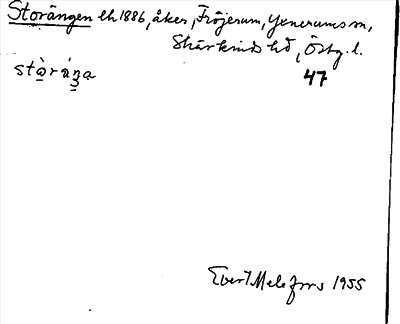 Storängen lh. 1886, åker, Fröjerum, Yxnerums sn,
Skärkinds hd, Östg. l.
stò̱ráṉa 47
Evert Melefors 1955